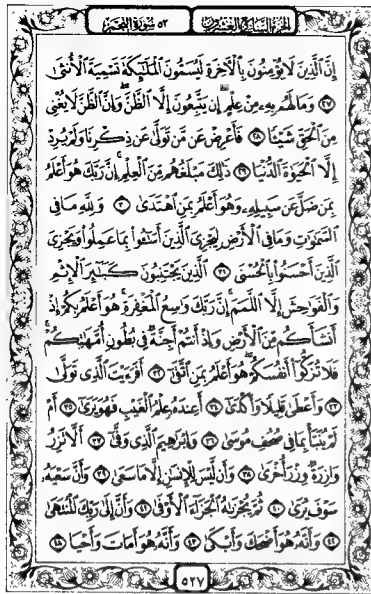 الجزء السابع والعشرون ٥٣ سورة النجم
إِنَّ الَّذِينَ لَا يُؤْمِنُونَ بِالْآخِرَةِ لَيُسَمُّونَ الْمَلَٰئِكَةَ تَسْمِيَةَ الْأُنثَىٰ
٢٧ وَمَا لَهُم بِهِ مِنْ عِلْمٍ إِن يَتَّبِعُونَ إِلَّا الظَّنَّ وَإِنَّ الظَّنَّ لَا يُغْنِي
مِنَ الْحَقِّ شَيْئًا ٢٨ فَأَعْرِضْ عَن مَّن تَوَلَّىٰ عَن ذِكْرِنَا وَلَمْ يُرِدْ
إِلَّا الْحَيَوٰةَ الدُّنْيَا ٢٩ ذَٰلِكَ مَبْلَغُهُم مِّنَ الْعِلْمِ إِنَّ رَبَّكَ هُوَ أَعْلَمُ
بِمَن ضَلَّ عَن سَبِيلِهِ وَهُوَ أَعْلَمُ بِمَنِ اهْتَدَىٰ ٣٠ وَلِلَّهِ مَا فِي
السَّمَٰوَٰتِ وَمَا فِي الْأَرْضِ لِيَجْزِيَ الَّذِينَ أَسَٰٓـُٔوا بِمَا عَمِلُوا وَيَجْزِيَ
الَّذِينَ أَحْسَنُوا بِالْحُسْنَى ٣١ الَّذِينَ يَجْتَنِبُونَ كَبَٰٓئِرَ الْإِثْمِ
وَالْفَوَٰحِشَ إِلَّا اللَّمَمَ إِنَّ رَبَّكَ وَٰسِعُ الْمَغْفِرَةِ هُوَ أَعْلَمُ بِكُمْ إِذْ
أَنشَأَكُم مِّنَ الْأَرْضِ وَإِذْ أَنتُمْ أَجِنَّةٌ فِي بُطُونِ أُمَّهَٰتِكُمْ
فَلَا تُزَكُّوا أَنفُسَكُمْ هُوَ أَعْلَمُ بِمَنِ اتَّقَىٰ ٣٢ أَفَرَءَيْتَ الَّذِي تَوَلَّىٰ
٣٣ وَأَعْطَىٰ قَلِيلًا وَأَكْدَىٰ ٣٤ أَعِندَهُ عِلْمُ الْغَيْبِ فَهُوَ يَرَىٰ ٣٥ أَمْ
لَمْ يُنَبَّأْ بِمَا فِي صُحُفِ مُوسَىٰ ٣٦ وَإِبْرَٰهِيمَ الَّذِي وَفَّىٰ ٣٧ أَلَّا تَزِرُ
وَازِرَةٌ وِزْرَ أُخْرَىٰ ٣٨ وَأَن لَّيْسَ لِلْإِنسَٰنِ إِلَّا مَا سَعَىٰ ٣٩ وَأَنَّ سَعْيَهُ
سَوْفَ يُرَىٰ ٤٠ ثُمَّ يُجْزَىٰهُ الْجَزَاءَ الْأَوْفَىٰ ٤١ وَأَنَّ إِلَىٰ رَبِّكَ الْمُنتَهَىٰ
٤٢ وَأَنَّهُ هُوَ أَضْحَكَ وَأَبْكَىٰ ٤٣ وَأَنَّهُ هُوَ أَمَاتَ وَأَحْيَا ٤٤
٥٢٧